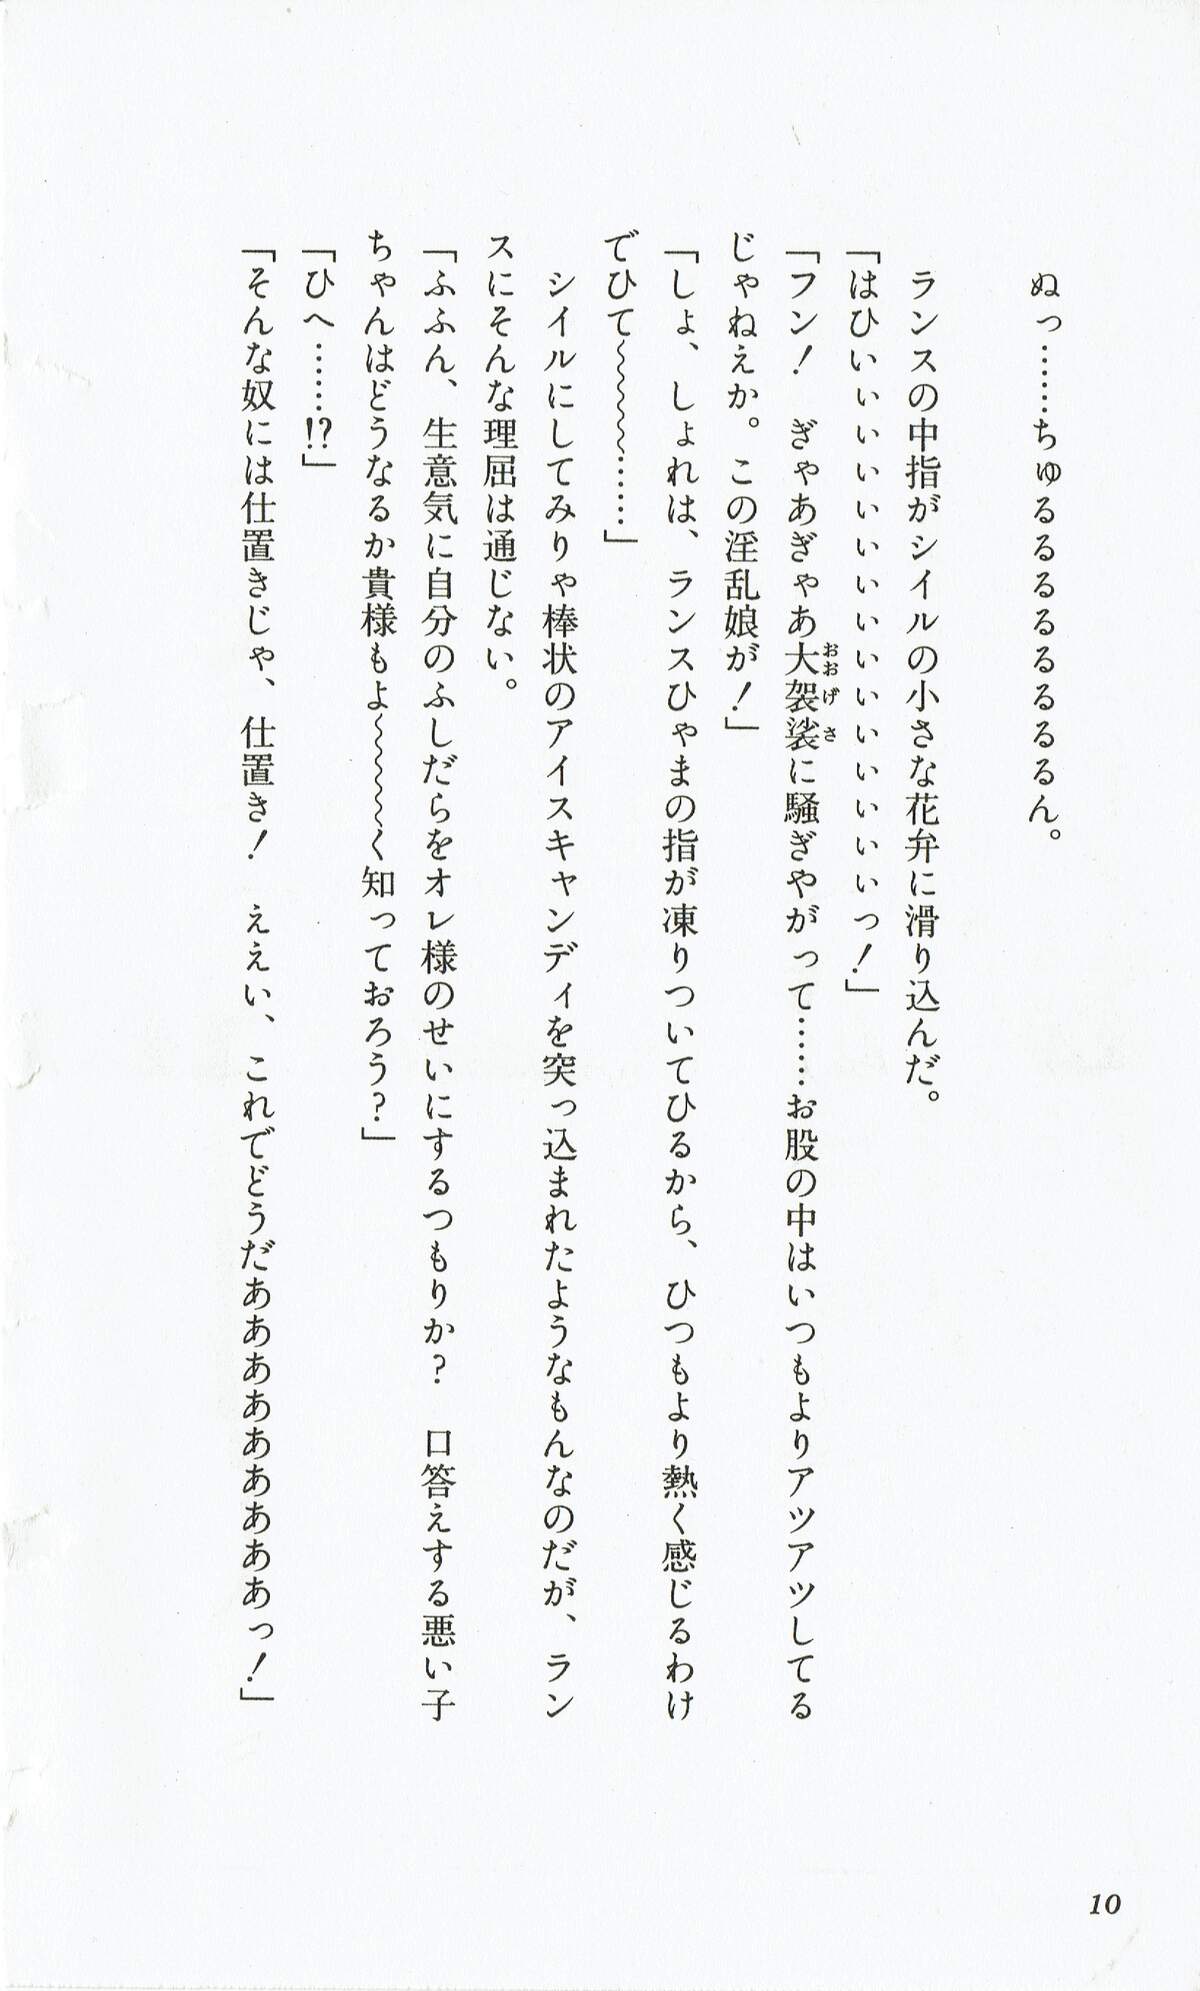 ぬっ……ちゅるるるるるるるるん。
ランスの中指がシイルの小さな花弁に滑り込んだ。
「はひいぃぃぃぃいぃぃいいぃぃいいぃっ！」
「フン！　ぎゃあぎゃあ大袈裟に騒ぎやがって……お股の中はいつもよりアツアツしてる
じゃねぇか。この淫乱娘が！」
「しょ、しょれは、ランスひゃまの指が凍りついてひるから、ひつもより熱く感じるわけ
でひて〜〜〜〜……」
シイルにしてみりゃ棒状のアイスキャンディを突っ込まれたようなもんなのだが、ラン
スにそんな理屈は通じない。
「ふふん、生意気に自分のふしだらをオレ様のせいにするつもりか？　口答えする悪い子
ちゃんはどうなるか貴様もよ〜〜〜〜く知っておろう？」
「ひへ……!?」
「そんな奴には仕置きじゃ、仕置き！　ええい、これでどうだあああああああああっ！」
10